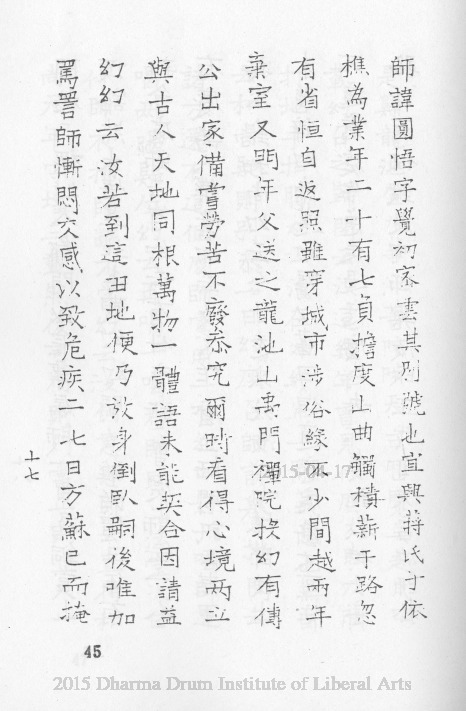 師諱圓悟字覺初密雲其別號也宜興蔣氏子依
樵為業年二十有七負擔度山曲觸積薪于路忽
有省恒自返照雖穿城市涉俗緣不少間越兩年
棄室又明年父送之龍池山禹門禪院投幻有傳
公出家備嘗勞苦不廢叅究爾時看得心境兩立
與古人天地同根萬物一體語未能契合因請益
幻幻云汝若到這田地便乃放身倒臥嗣後唯加
罵詈師慚悶交感以致危疾二七日方蘇已而掩
十七
45
2015-04-17
2015 Dharma Drum Institute of Liberal Arts